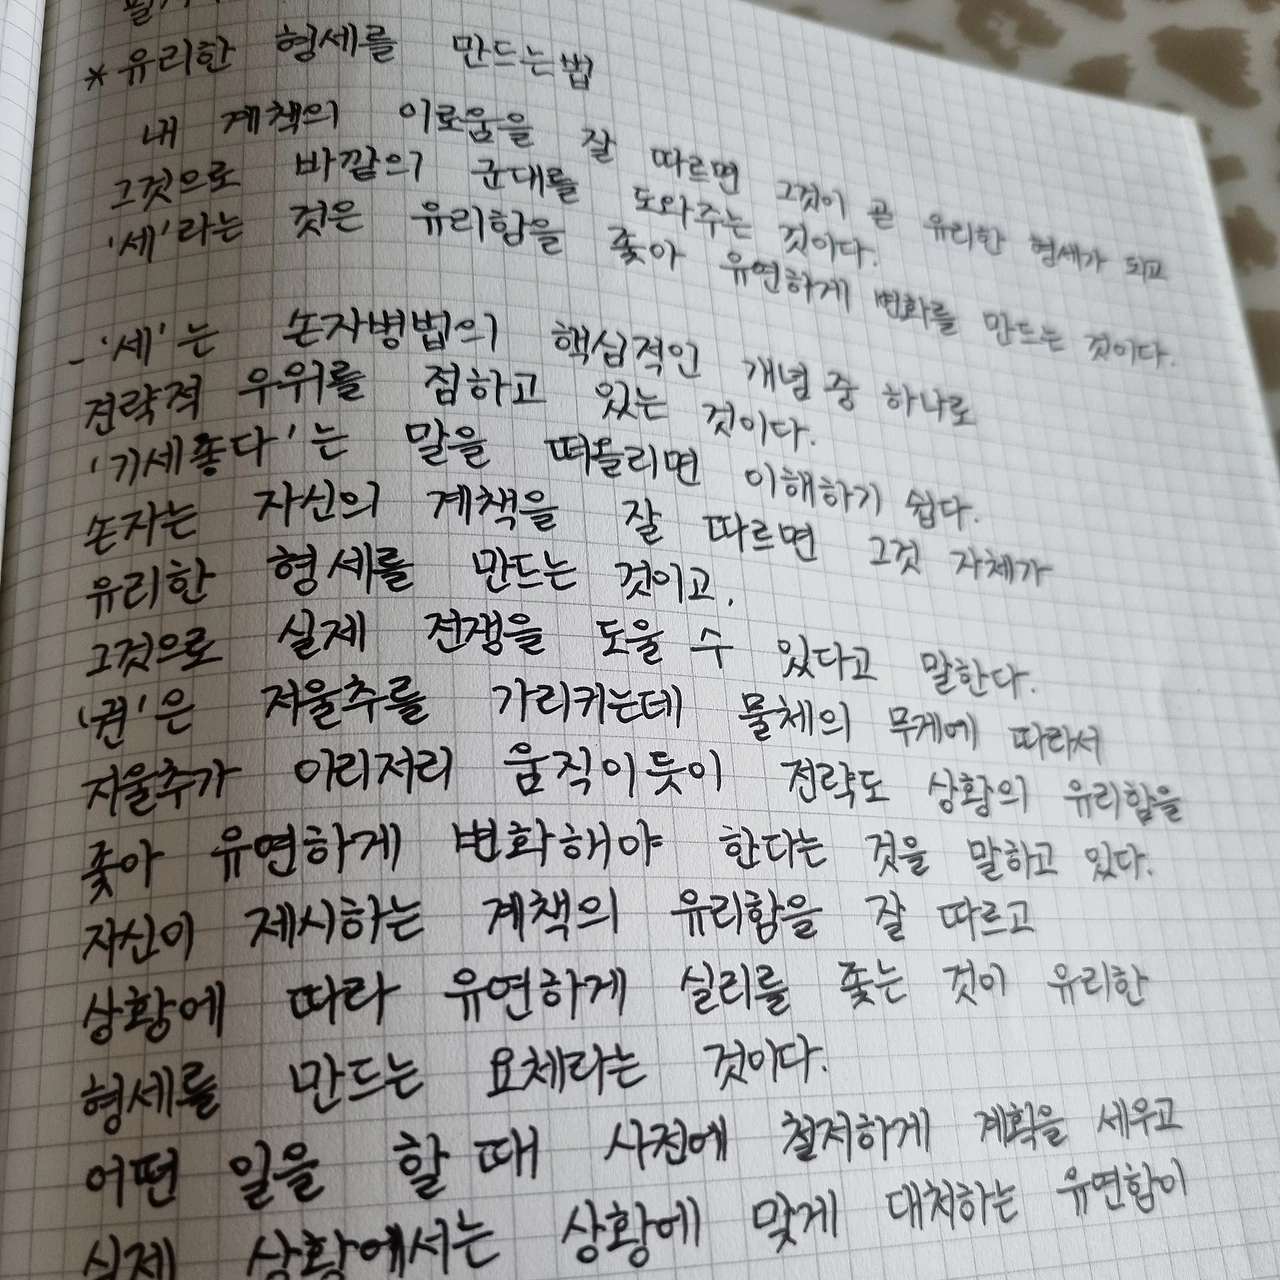 * 유리한 형세를 만드는법
내 계책의 이로움을 잘 따르면 그것이 곧 유리한 형세가 되고
그것으로 바깥의 군대를 도와주는 것이다.
'세'라는 것은 유리함을 좇아 유연하게 변화를 만드는 것이다.
-'세'는 손자병법의 핵심적인 개념 중 하나로
전략적 우위를 점하고 있는 것이다.
'기세좋다'는 말을 떠올리면 이해하기 쉽다.
손자는 자신의 계책을 잘 따르면 그것 자체가
유리한 형세를 만드는 것이고,
그것으로 실제 전쟁을 도울 수 있다고 말한다.
'권'은 저울추를 가리키는데 물체의 무게에 따라서
저울추가 이리저리 움직이듯이 전략도 상황의 유리함을
좇아 유연하게 변화해야 한다는 것을 말하고 있다.
자신이 제시하는 계책의 유리함을 잘 따르고
상황에 따라 유연하게 실리를 좇는 것이 유리한
형세를 만드는 요체라는 것이다.
어떤 일을 할 때 사전에 철저하게 계획을 세우고
실제 상황에서는 상황에 맞게 대처하는 유연함이